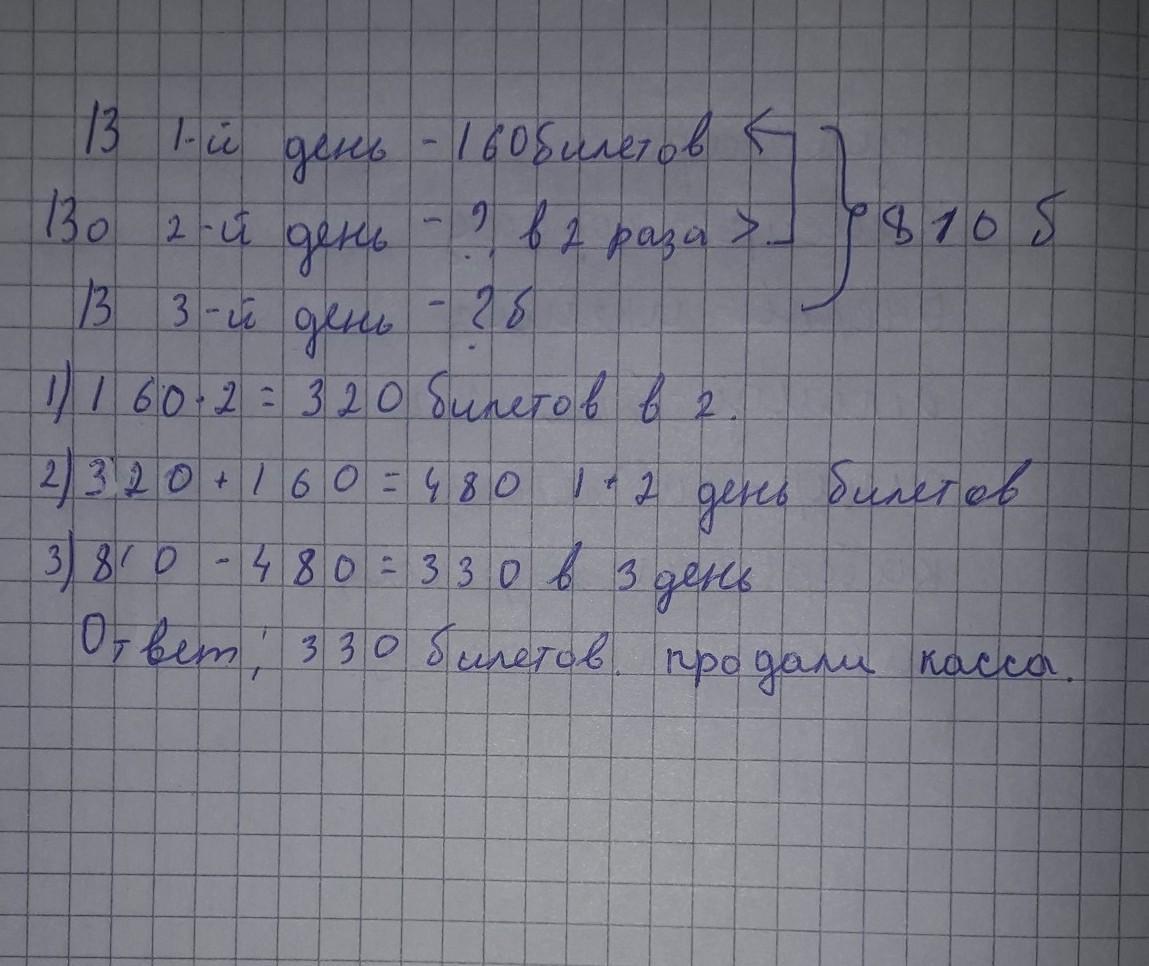 В 1-й день - 160 билетов
Во 2-й день - ? в 2 раза > 810 б
В 3-й день - ? б
1) 160·2=320 билетов в 2.
2) 320+160=480 1+2 день билетов
3) 810-480=330 в 3 день
Ответ; 330 билетов. продали касса.